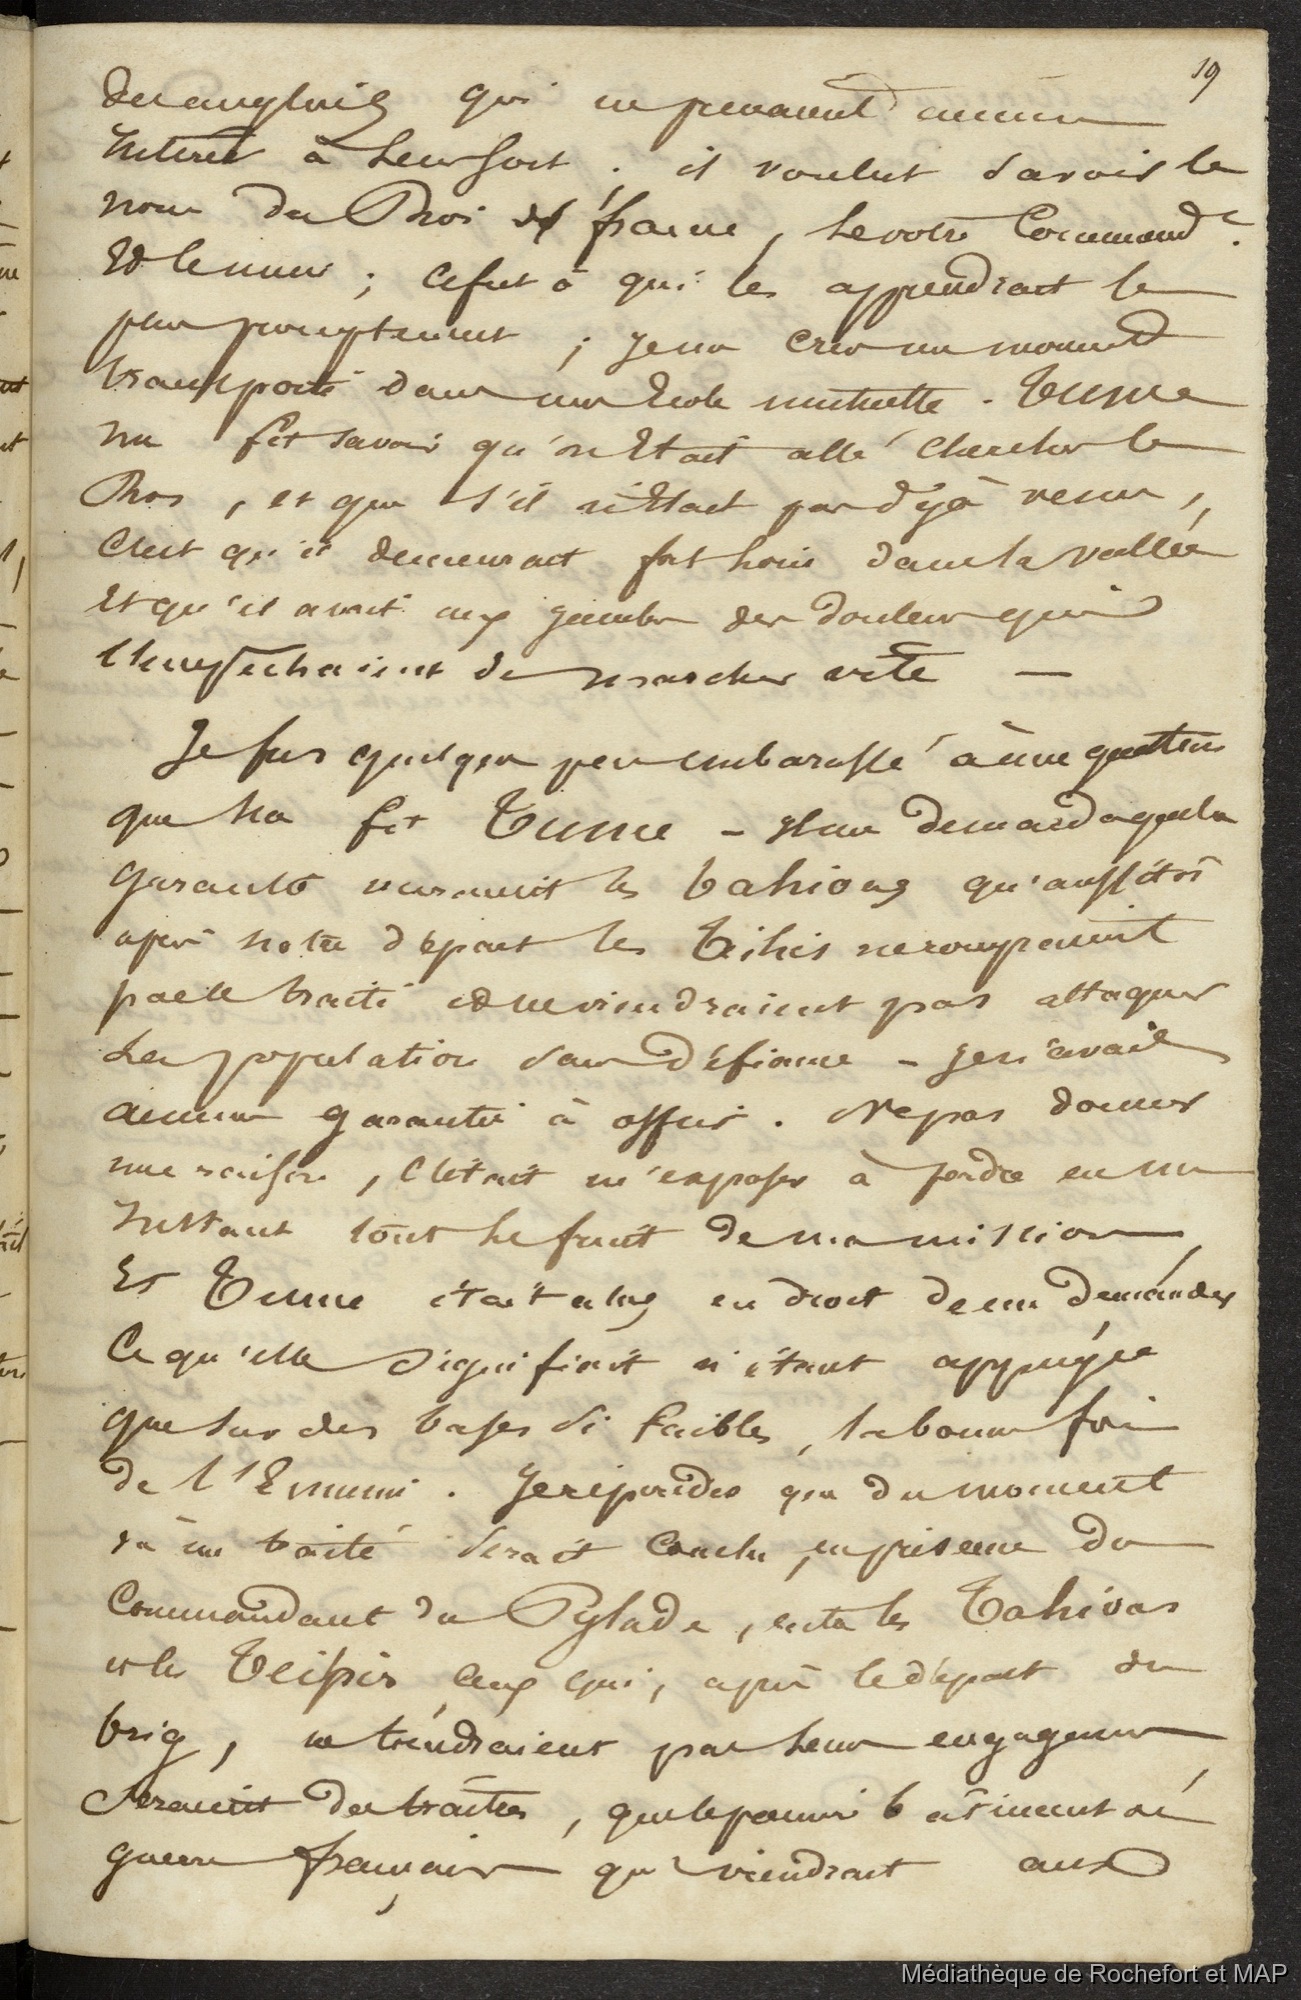 19
des anglais qui ne prenaient aucun
Intérêt à leur sort. il voulut savoir le
nom du Roi de france, le votre Commandt.
Et le mien ; ce fut à qui les apprendrait le
plus promptement ; je me crus un moment
transporté dans une Ecole mutuelle. Tume
me fit savoir qu'on Etait allé chercher le
Roi, et que s'il n'Etait pas déjà venu,
C'est qu'il demeurait fort loin dans la vallée
Et qu'il avait aux jambes des douleurs qui
l'Empêchaient de marcher vite —
Je fus quelque peu embarassé à une question
que me fit Tume – Il me demanda quelle
garantie auraient les tahioas qu'aussitôt
après notre départ les Teihis ne rompraient
pas le traité et ne viendraient pas attaquer
La population sans défiance – Je n'avais
aucune garantie à offrir. Ne pas donner
une raison, C'était m'exposer à perdre en un
Instant tout le fruit de ma mission,
Et Tume était alors en droit de me demander
Ce qu'elle signifiait n'étant appuyée
que sur des bases si faibles, la bonne foi
de l'Ennemi. Je répondis que du moment
où un traité serait conclu, en présence du
Commandant du Pylade, entre les Tahioas
et les Teipis ceux qui, après le départ du
brig, ne tiendraient pas leur engagement,
Seraient des traîtres, que le premier bâtiment de
guerre français qui viendrait aux
Médiathèque de Rochefort et MAP